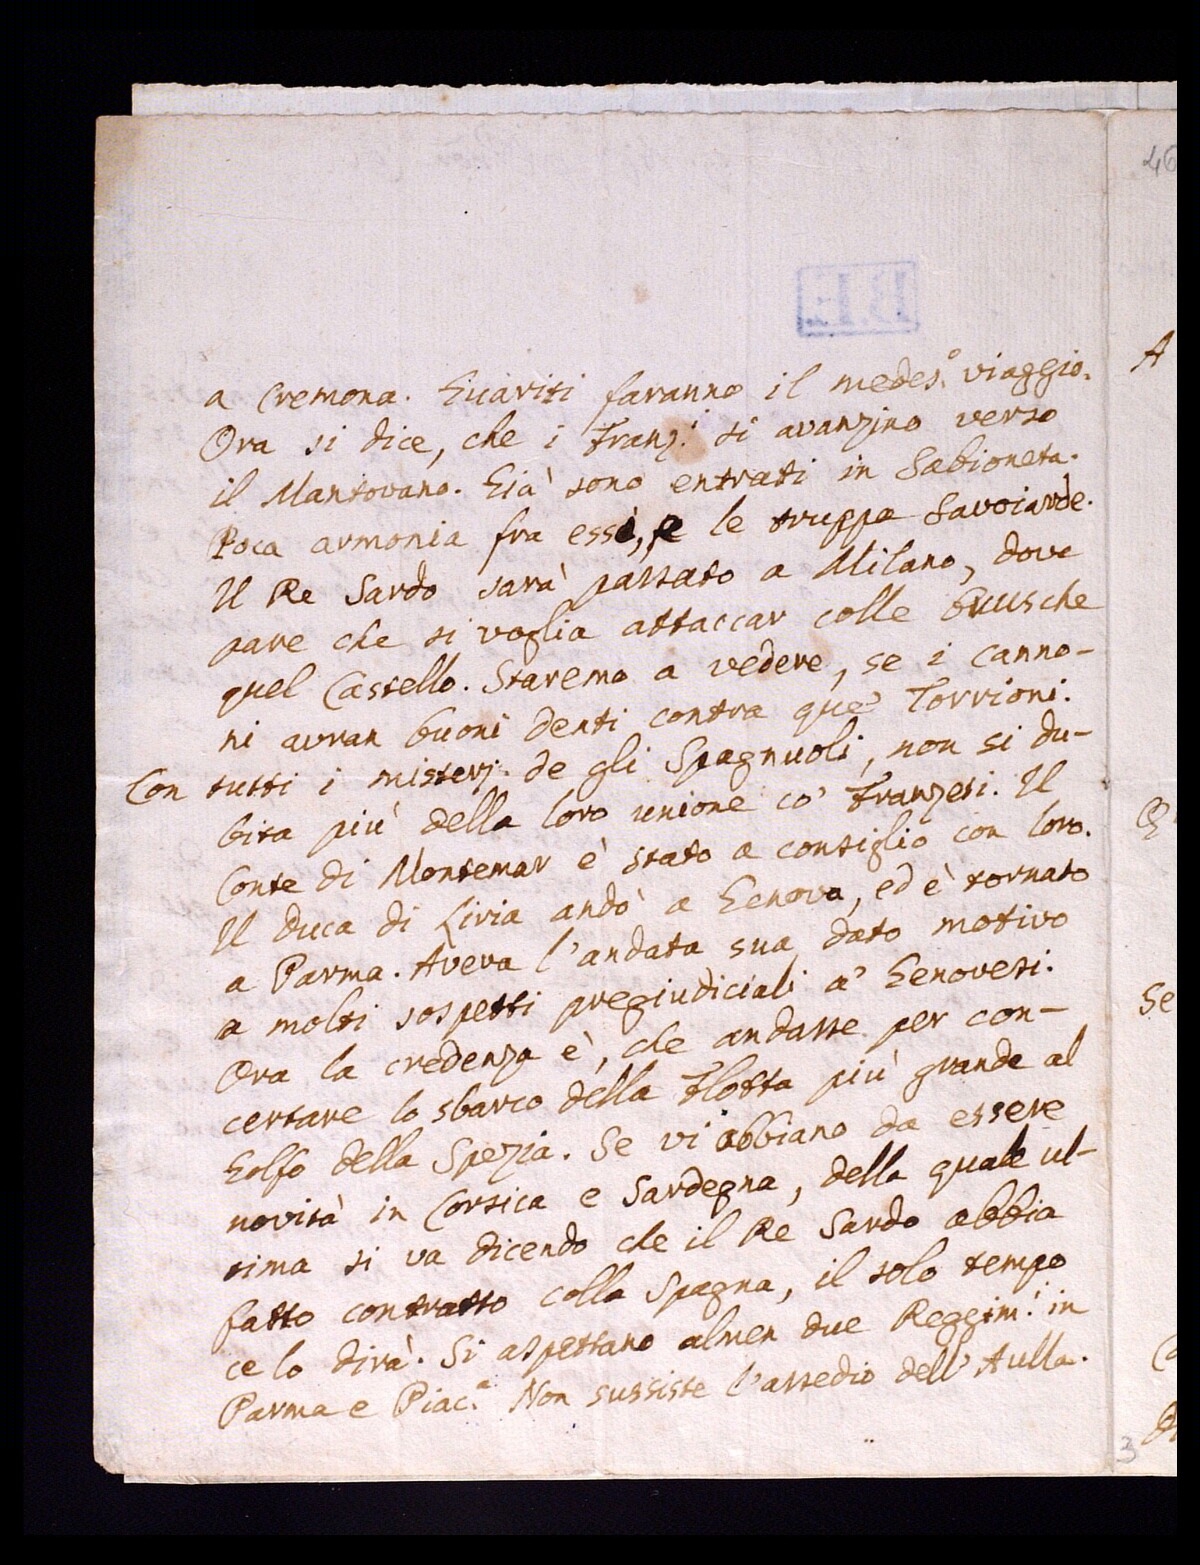 a Cremona. Guariti faranno il medes.° viaggio.
Ora si dice, che i Franz.i si avanzino verso
il Mantovano. Già sono entrati in Sabioneta.
Poca armonia fra essi, e le truppe Savoiarde.
Il Re Sardo sarà passato a Milano, dove
pare che si voglia attaccar colle brusche
quel Castello. Staremo a vedere, se i canno-
ni avran buoni denti contra que' Torrioni.
Con tutti i misterj de gli Spagnuoli, non si du-
bita più della loro unione co' Franzesi. Il
Conte di Montemar è stato a consiglio con loro.
Il Duca di Liria andò a Genova, ed è tornato
a Parma. Aveva l'andata sua dato motivo
a molti sospetti pregiudiciali a' Genovesi.
Ora la credenza è, che andasse per con-
certare lo sbarco della Flotta più grande al
Golfo della Spezia. Se vi abbiano da essere
novità in Corsica e Sardegna, della quale ul-
tima si va dicendo che il Re Sardo abbia
fatto contratto colla Spagna, il solo tempo
ce lo dirà. Si aspettano almen due Reggim.i in
Parma e Piac.a Non sussiste l'assedio dell'Aulla.
46
A
Se
3
B.E.